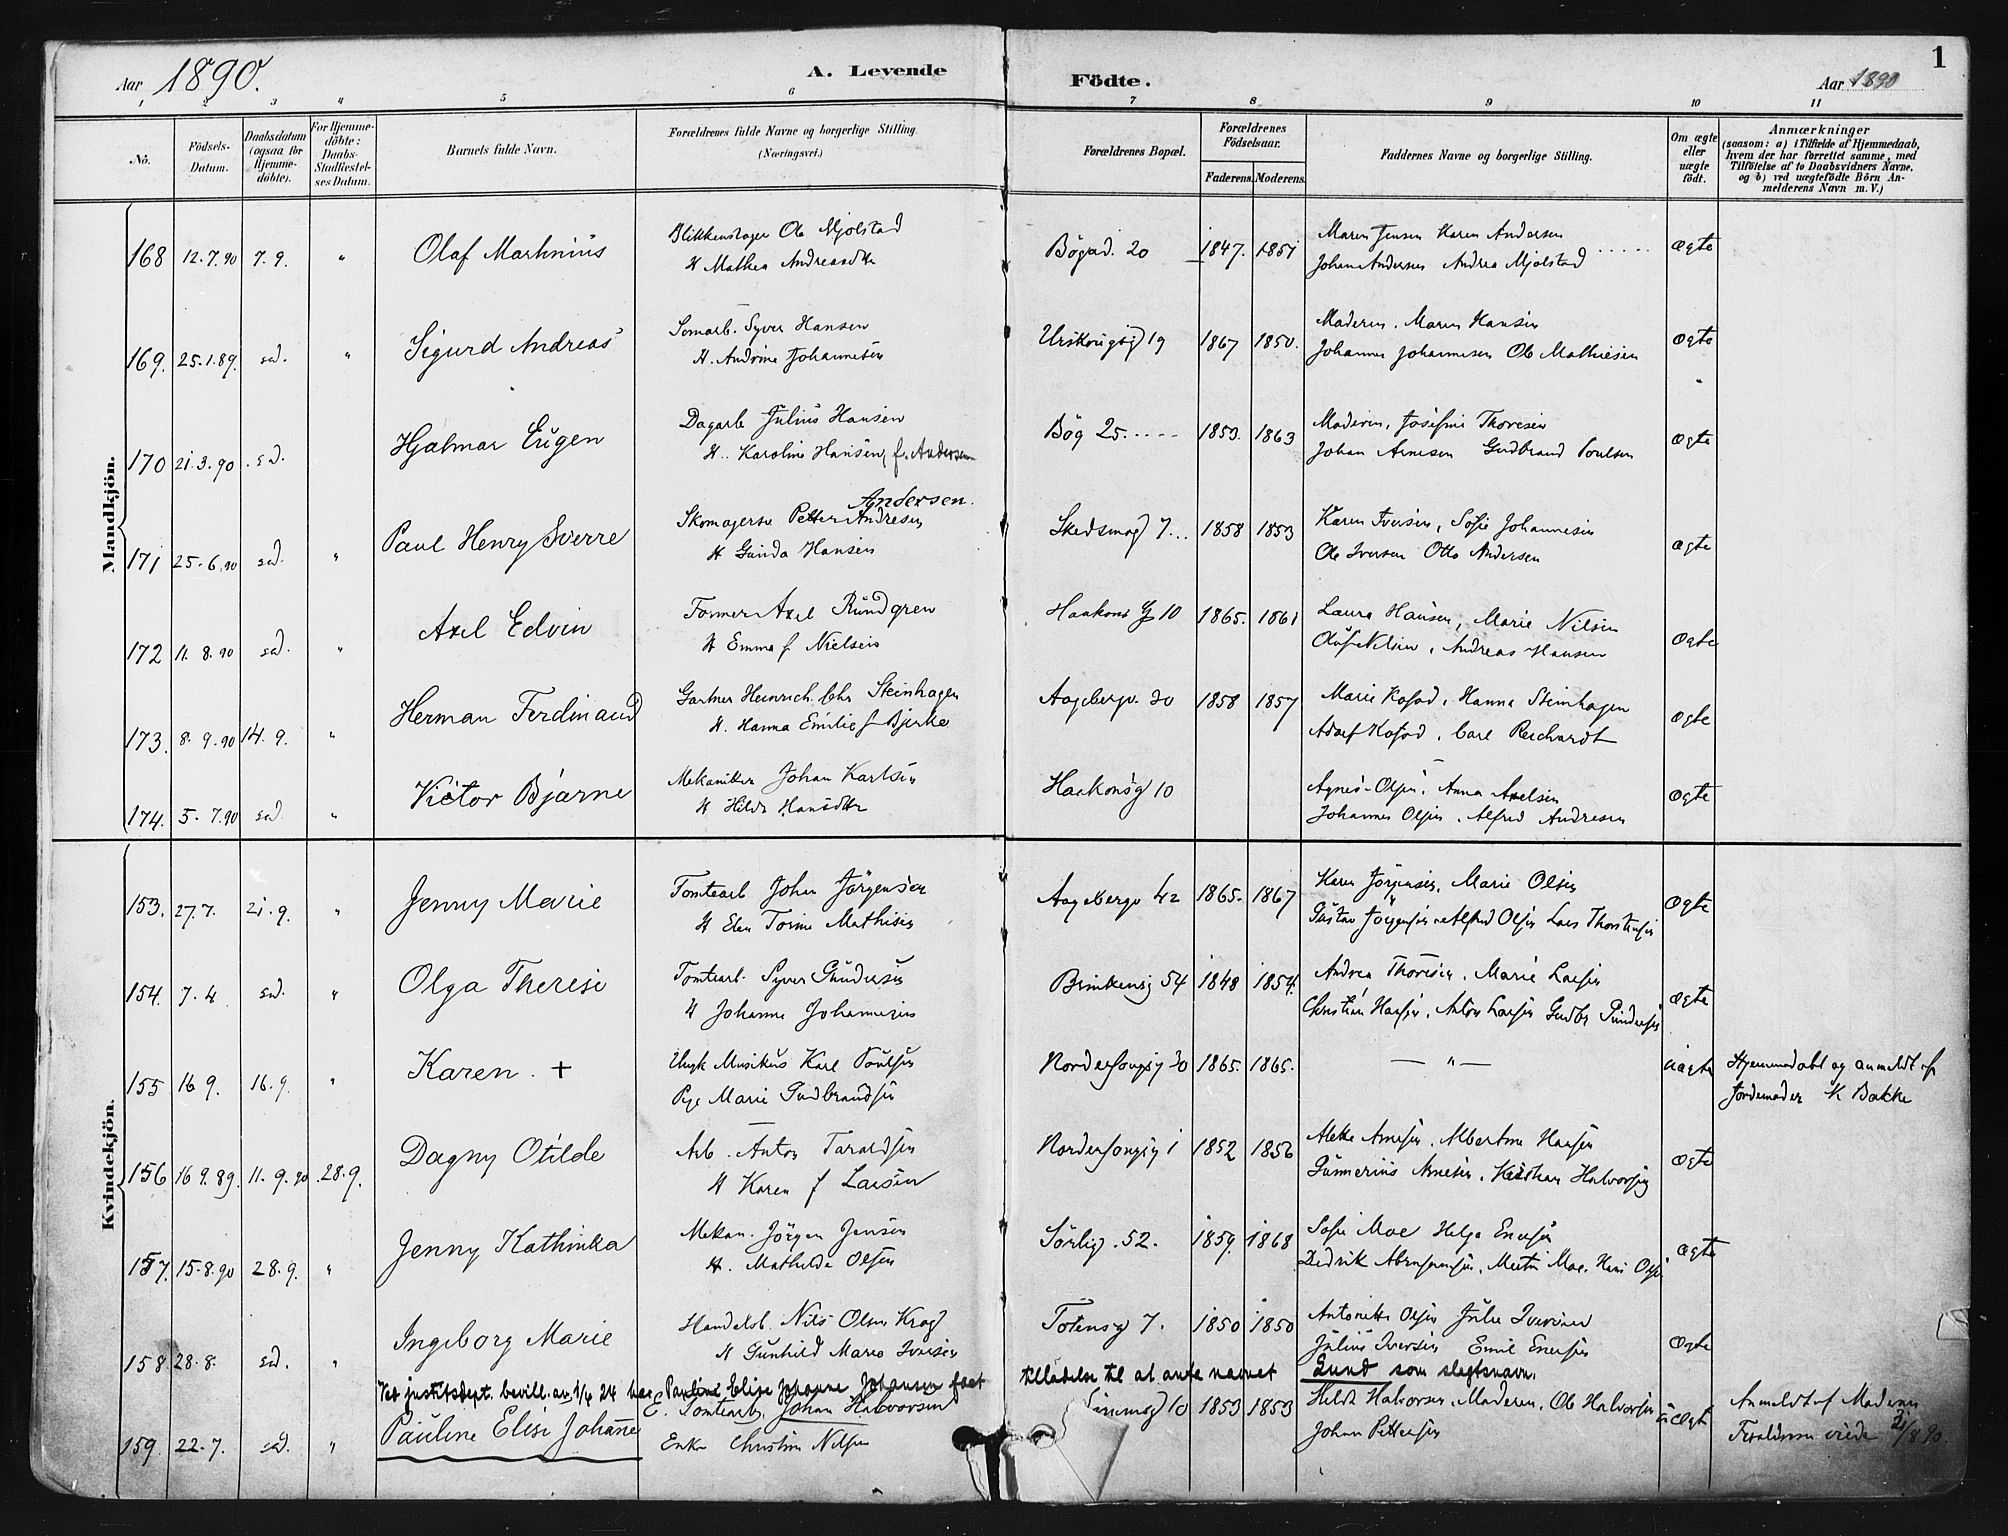 Aar 1890.
A. Levende Födte.
Aar 1890
1
1 2 3 4 5 6 7 8 9 10 11
No.
Födsels-Datum.
Daabsdatum (ogsaa for Hjemme-döbte).
For Hjemme-döbte: Daabs-Stadfæstel-ses Datum.
Barnets fulde Navn.
Forældrenes fulde Navne og borgerlige Stilling. (Næringsvei.)
Forældrenes Bopæl.
Forældrenes Födselsaar.
Faderens. Moderens.
Faddernes Navne og borgerlige Stilling.
Om ægte eller uægte födt.
Anmærkninger (saasom: a) i Tilfælde af Hjemmedaab, hvem der har forrettet samme, med Tilföielse af to Daabsvidners Navne, og b) ved uægtefödte Börn An-melderens Navn m. V.)
Mandkjön.
168 12.7.90 7.9. " Olaf Marthinius
Blikkenslager Ole Mjølstad
H Mathea Andreasdtr
Bögad. 20 1847. 1851
Maren Jensen Karen Andersen
Johan Andersen Andrea Mjølstad
ægte
169. 25.1.89. sd. " Sigurd Andreas
Tomarb. Syver Hansen
H. Andrine Johannesen
Urskougsg 19 1867 1850.
Moderen, Maren Hansen
Johannes Johannesen Ole Mathiesen
ægte
170 21.3.90 sd. Hjalmar Eugen
Dagarb Julius Hansen
H. Karoline Hansen, f. Andersen
Bög 25. 1859. 1863
Moderen, Josefine Thoresen
Johan Arnesen Gudbrand Poulsen
ægte
171 25.6.90 sd. " Paul Henry Sverre
Andersen.
Skomagersv Petter Andresen
H Gunda Hansen
Skedsmog 7... 1858 1853
Karen Iversen, Sofie Johannesen
Ole Iversen Otto Andersen
ægte
172 11.8.90 sd. " Axel Edvin
Former Axel Rundgren
H Emma f Nielsen
Haakons G 10 1865. 1861
Laura Hansen, Marie Nilsen
Oluf Nilsen, Andreas Hansen
ægte
173. 8.9.90 14.9. " Herman Ferdinand
Gartner Heinrich Chr Steinhagen
H. Hanna Emilie f Bjerke
Aagebergv. 30 1858 1857
Marie Kofod, Hanna Steinhagen
Adolf Kofod, Carl Reichardt
ægte
174. 5.7.90 sd. " Victor Bjarne
Mekaniker Johan Karlsen
H Hilda Hansdtr
Haakonsg 10
Agnes Olsen, Anna Axelsen
Johannes Olsen, Alfred Andresen
ægte
Kvindekjön.
153. 27.7. 21.9. " Jenny Marie
Tomtearb Johan Jørgensen
H Elen Torine Mathisen
Aagebergv 42 1865. 1867
Karen Jørgensen, Marie Olsen
Gustav Jørgensen Alfred Olsen Lars Thorstensen
ægte
154. 7.4 sd. " Olga Therese
Tomtearb. Syver Gundersen
H Johanne Johannesen
Brinkensg 54 1848 1854.
Andrea Thoresen, Marie Larsen
Christian Hansen, Anton Larsen Gudbr Gundersen
ægte
155 16 9. 16.9. " Karen. +
Ugk Musikus Karl Poulsen
Pige Marie Gudbrandsen
Nordersongsg 30 1865. 1865.
— " —
uægte
Hjemmedøbt og anmeldt af
Jordemoder K Bakke
156 16 9.89. 11.9.90 28.9. Dagny Otilde
Arb. Anton Taraldsen
H Karen f Larsen
Nordersongsg 1 1852 1856
Alette Arnesen, Albertine Hansen
Gunnerius Arnesen, Kristian Halvorsen
ægte
157. 15.8.90 28.9. " Jenny Kathinka
Mekan. Jörgen Jensen
H. Mathilde Olsen
Sørlig. 52. 1859. 1868
Sofie Moe Helga Enersen
Didrik Abrahamsen, Martin Moe, Hans Olsen
ægte
158. 28.8. sd. " Ingeborg Marie
Handelsb. Nils Olsen Krog
H Gunhild Marie Iversen
Totensg 7. 1850 1850
Antonette Olsen Julie Iversen
Julius Iversen Emil Enersen
ægte
Ved justitsdept. bevill. av 1/4 24 har Pauline Elise Johanne Johansen faat tilladelse til at anta navnet Lund som slegtsnavn.
159. 22.7. sd. " Pauline Elise Johanne
E. Tomtearb. Johan Halvorsen
Enke Christine Nilsen
10 1853 1853
Hilda Halvorsen, Moderen, Ole Halvorsen
Johan Pettersen
uægte
Anmeldt af Moderen
Forældrene viede 31/8 90.